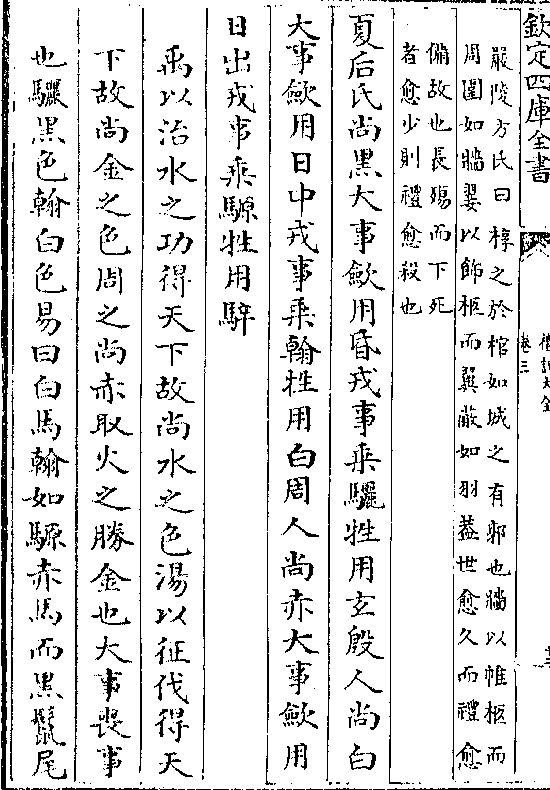 欽定四庫全書
禮記大全
卷三
嚴陵方氏曰椁之於棺如城之有郭也牆以帷柩而
周圍如牆翣以飾柩而翼蔽如羽蓋世愈久而禮愈
備故也長殤而下死
者愈少則禮愈殺也
夏后氏尚黑大事歛用昏戎事乗驪牲用玄殷人尚白
大事歛用日中戎事乗翰牲用白周人尚赤大事歛用
日出戎事乗騵牲用騂
禹以治水之功得天下故尚水之色湯以征伐得天
下故尚金之色周之尚赤取火之勝金也大事喪事
也驪黒色翰白色易曰白馬翰如騵赤馬而黒鬛尾